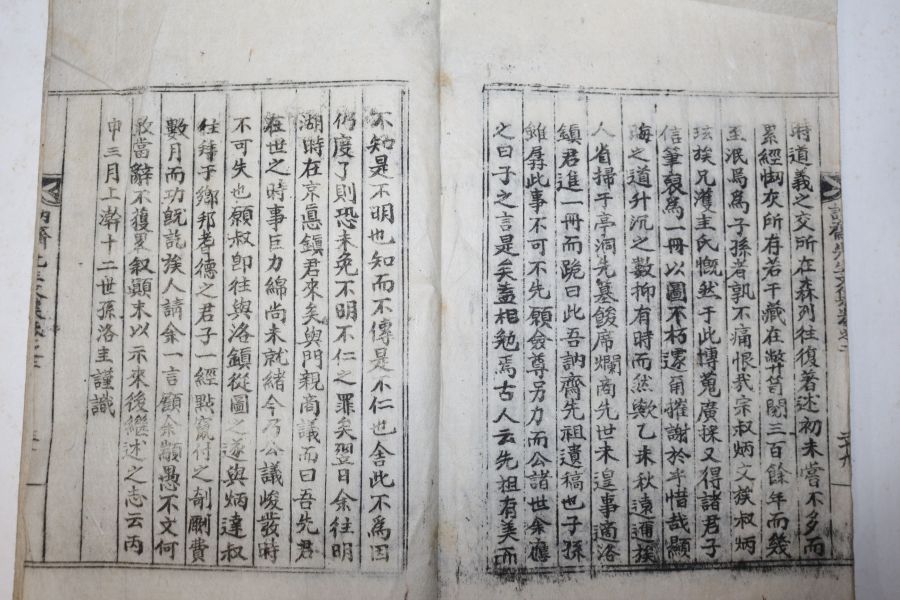 時道義之交所在森列往復著述初未嘗不多而
累經惻灰所存若干藏在弊笥閱三百餘年而幾
至泯局爲子孫者孰不痛恨哉宗叔炳文族叔炳
玹族兄濩主氏慨然于此博蒐廣採又得諸君子
信筆裒爲一冊以圖不朽遽爾摧謝於乎惜哉顯
晦之道升沉之數抑有時而然歟乙未秋遠邇族
人省掃于亭洞先墓餕席爛商先世未遑事適洛
鎮君進一冊而跪曰此吾訥齋先祖遺稿也子孫
雖孱此事不可不先願僉尊另力而公諸世僉應
之曰子之言是矣盖相勉焉古人云先祖有美而
不知是不明也知而不傳是不仁也舍此不爲因
仍度了則恐未免不明不仁之罪矣翌日余往明
湖時在京悳鎮君來矣與門親啇議而曰吾先君
在世之時事巨力綿尚未就緒今乃公議峻發時
不可失也願叔卽往與洛鎮從圖之遂與炳達叔
往拜于鄉邦耆德之君子一經點竄付之剞劂費
數月而功旣訖族人請余一言顧余顓愚不文何
敢當辭不獲畧叙顛末以示來後繼述之志云丙
申三月上澣十二世孫洛主謹識